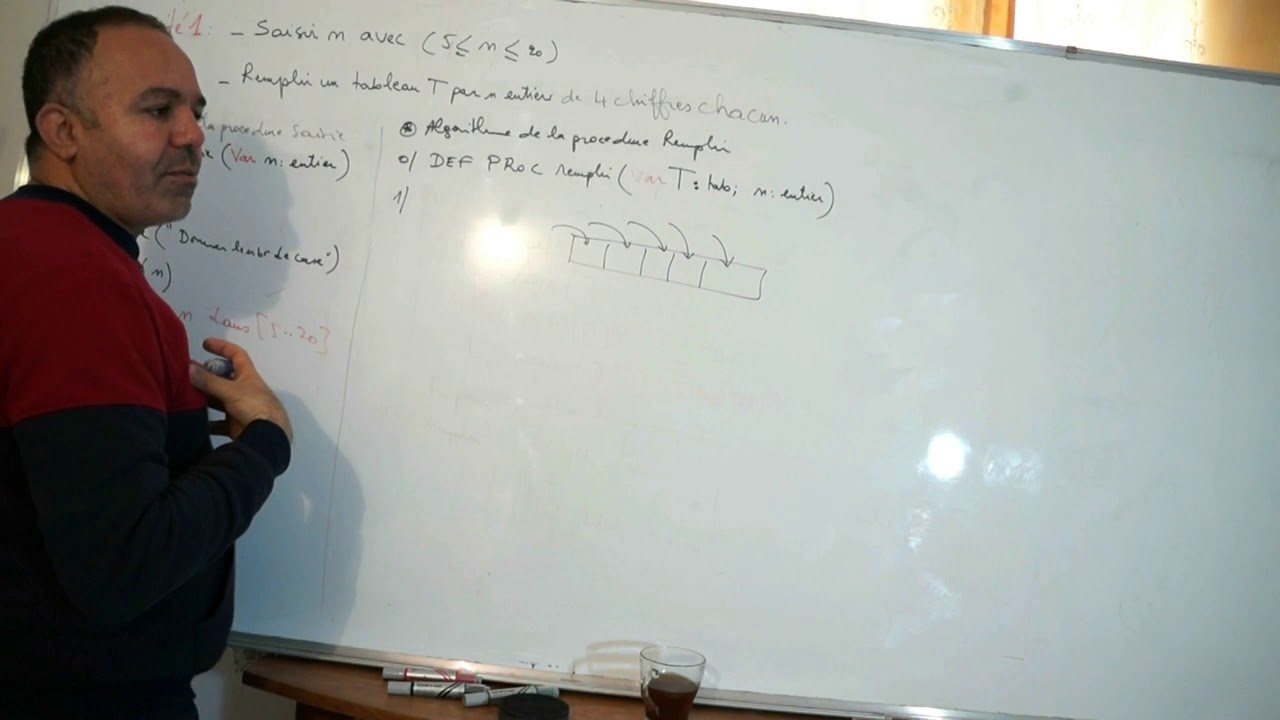 té 1 : - Saisir n avec (5 ≤ n ≤ 20)
- Remplir un tableau T par n entiers de 4 chiffres chacun.
la procedure Saisie
(Var n : entier)
("Donner le nbr de case")
(n)
n dans [5..20]
⊛ Algorithme de la procedure Remplir
0/ DEF PROC remplir (var T : tab; n : entier)
1/